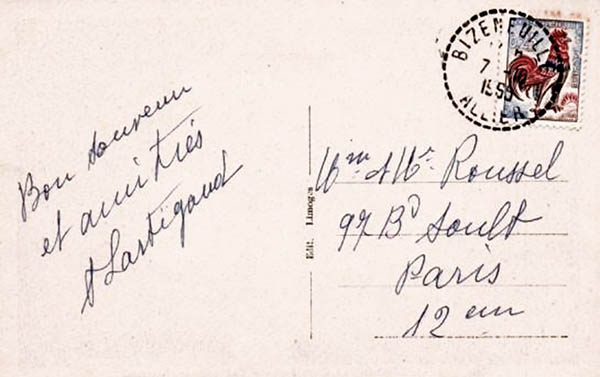 Bon souvenir
et amitiés
Lartigaud
Edit. Limoges
Mme & Mr Roussel
97 Bd Soult
Paris
12 em
BIZENEUILLE
7
ALLIER